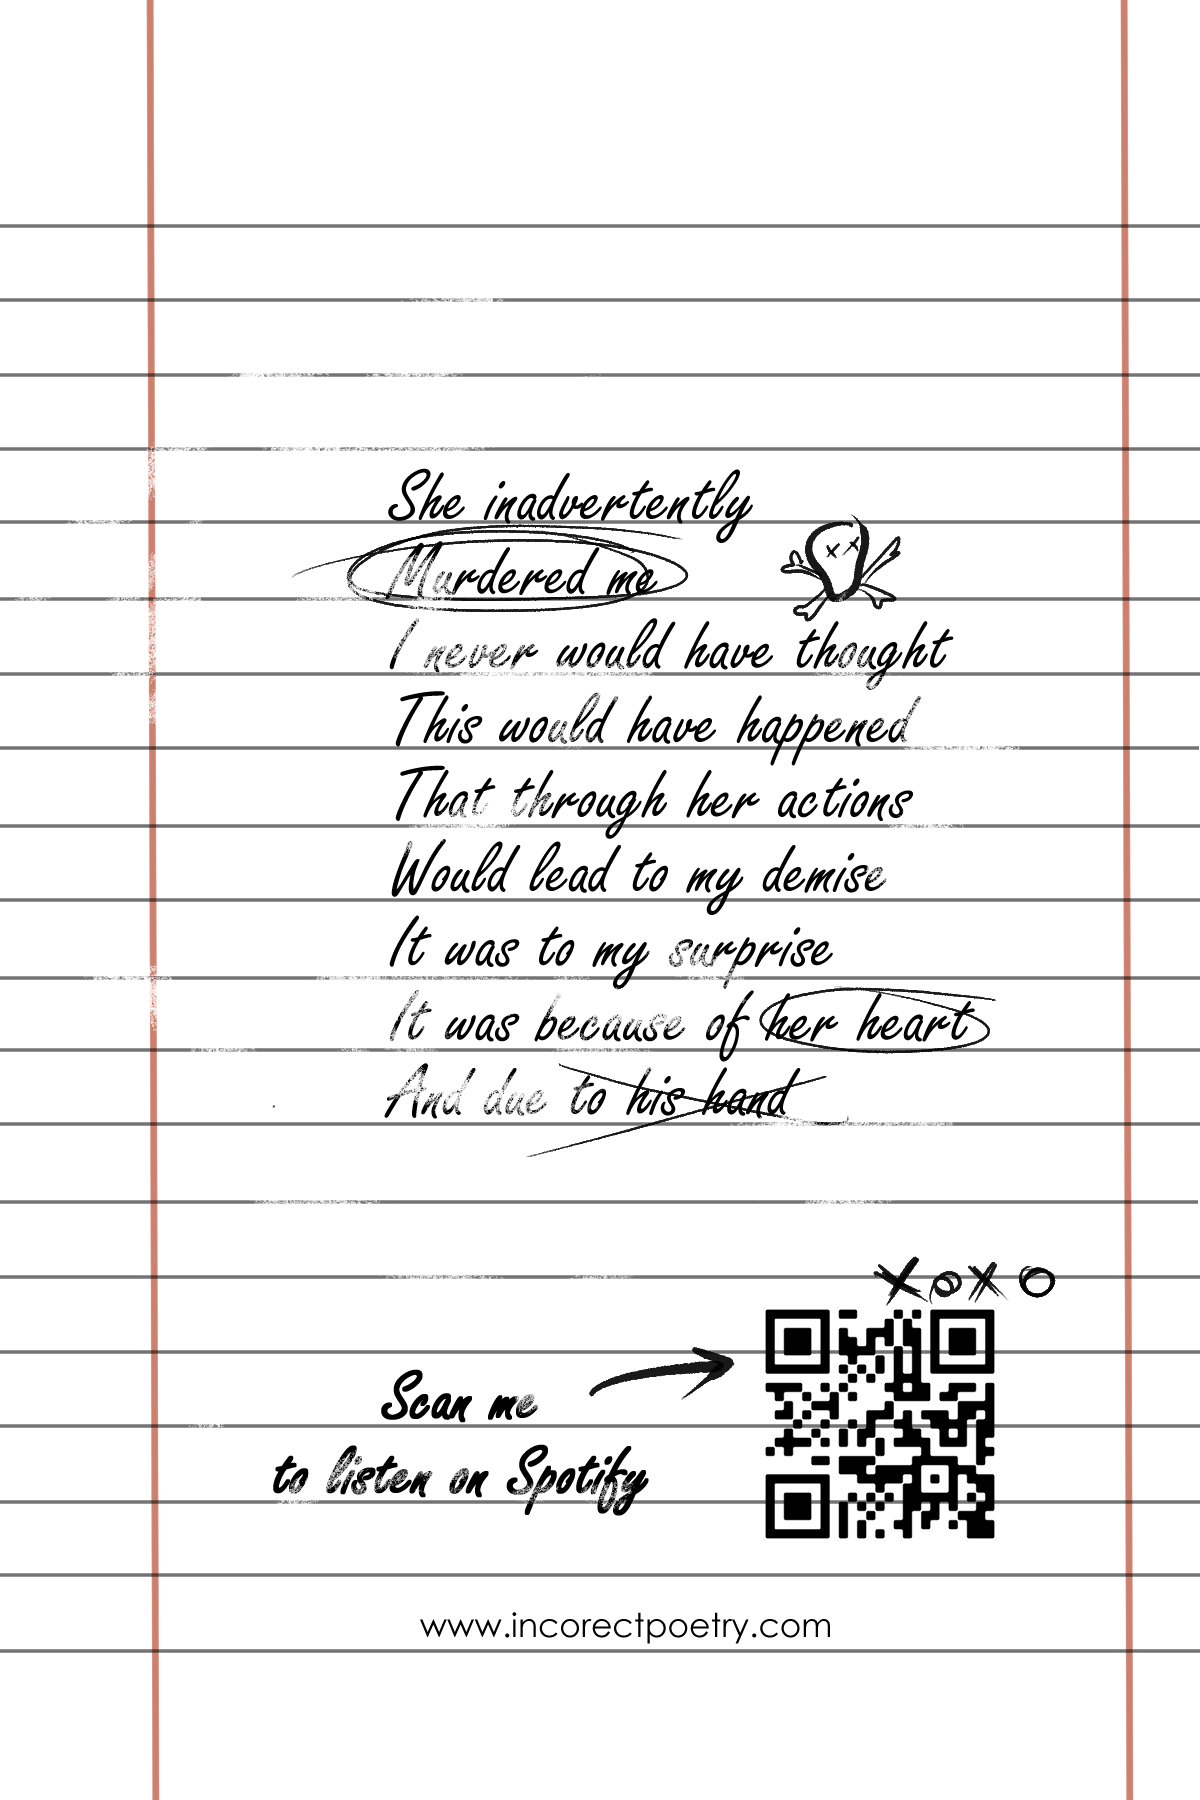 She inadvertently
Murdered me
I never would have thought
This would have happened
That through her actions
Would lead to my demise
It was to my surprise
It was because of her heart
And due to his hand
XOXO
Scan me
to listen on Spotify
www.incorectpoetry.com